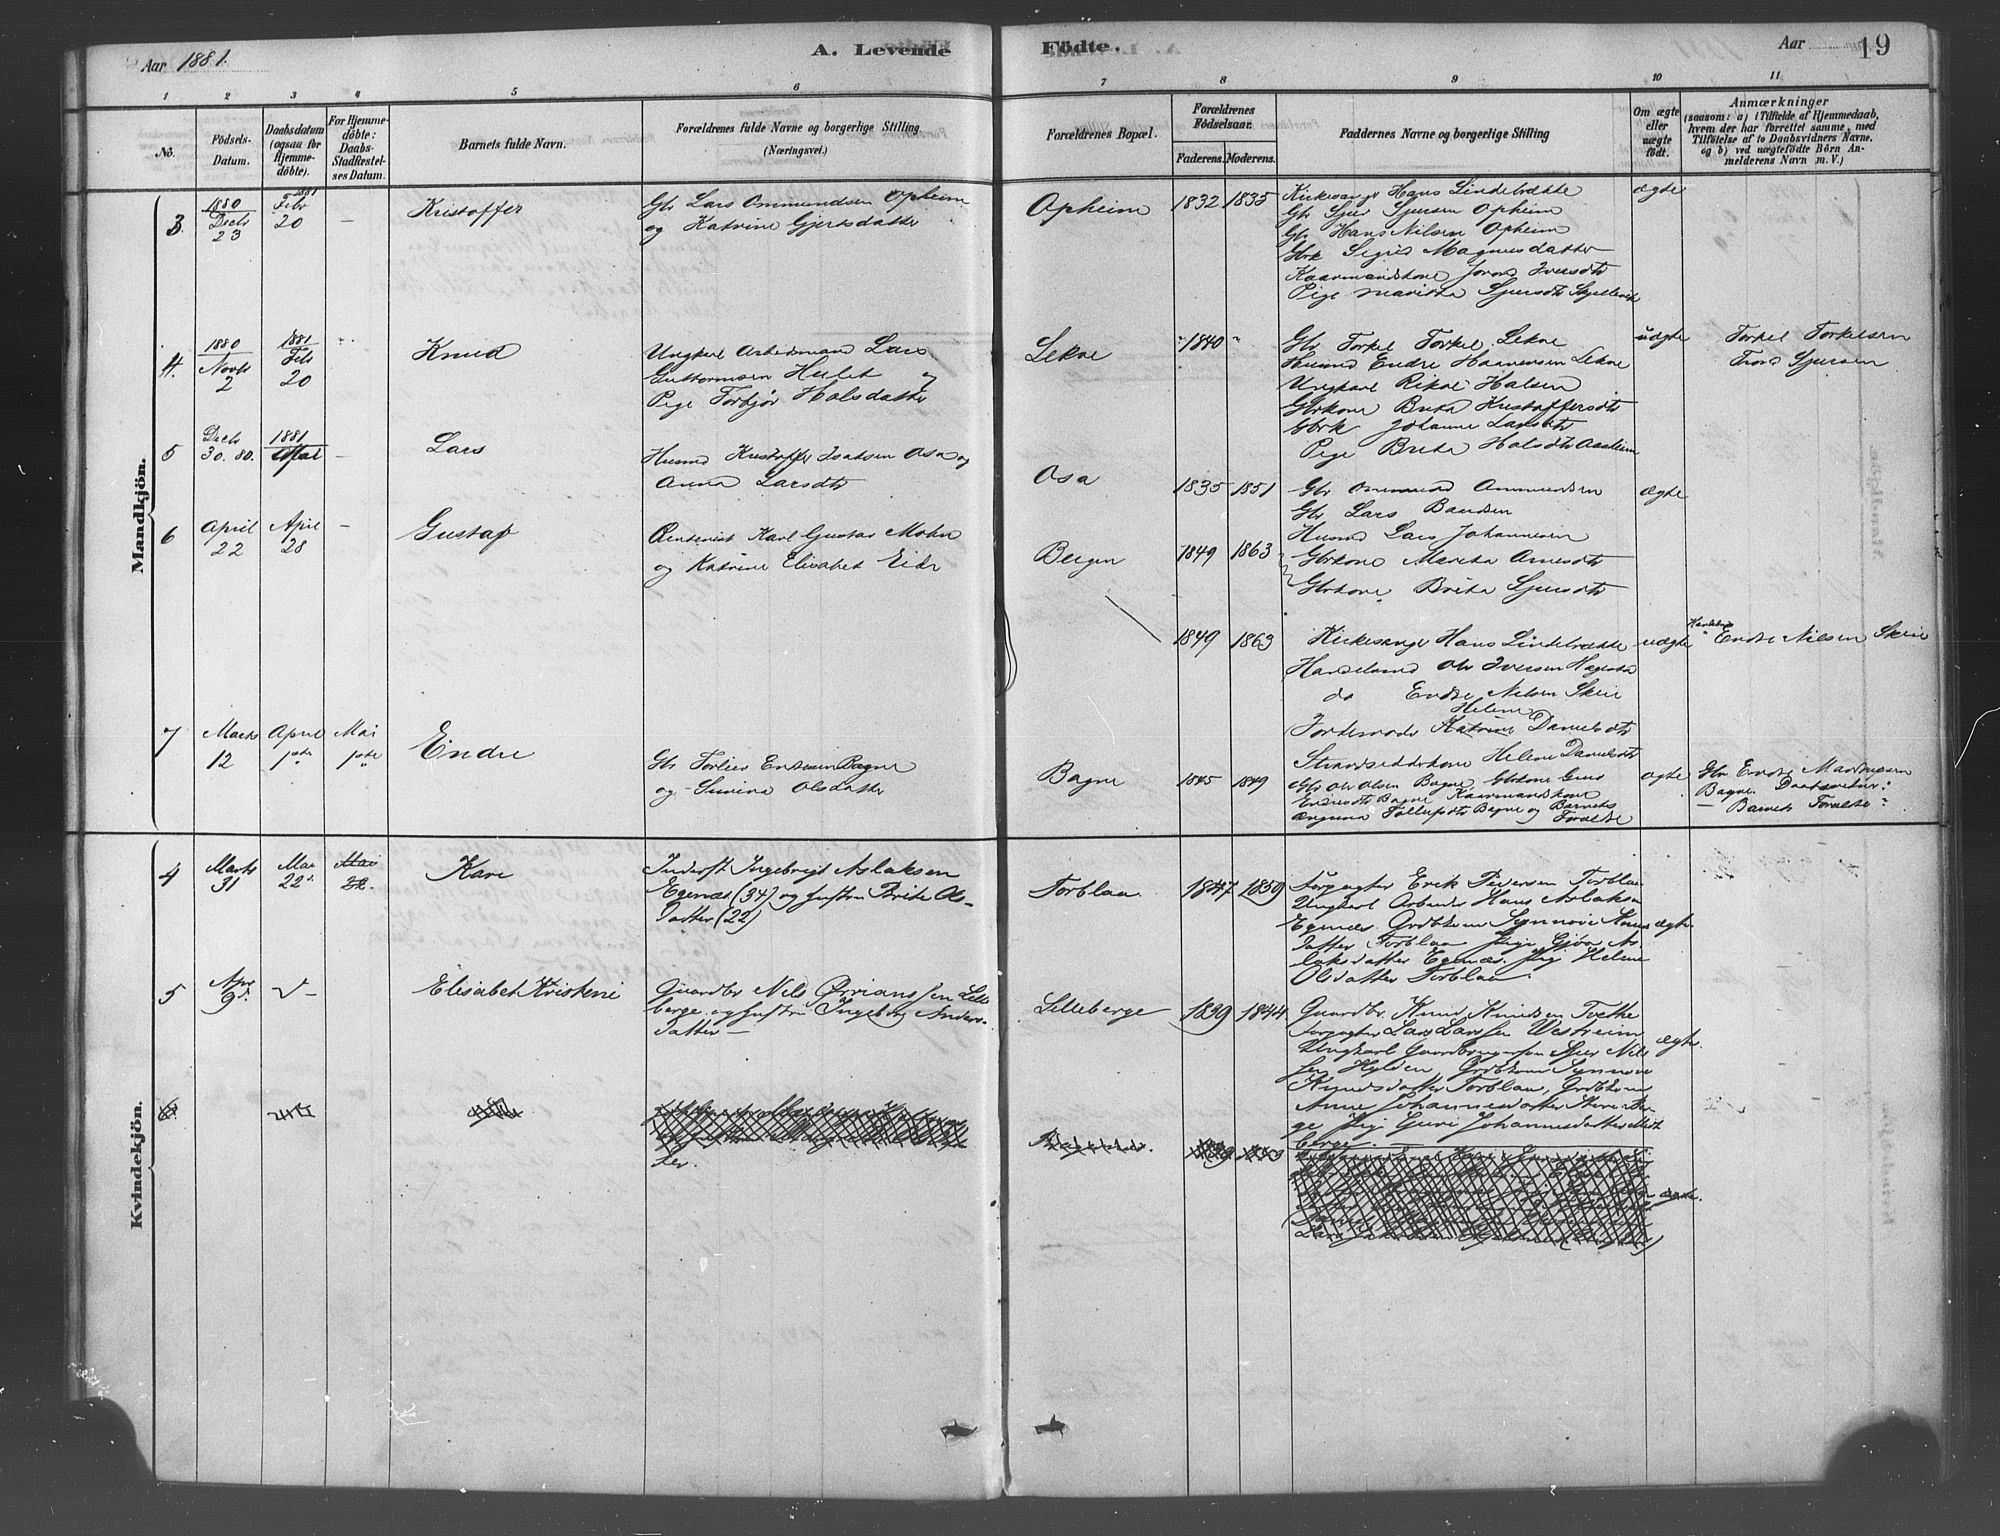 Aar 1881.
A. Levende
Födte.
Aar
19
1 2 3 4 5 6
7 8 9 10 11
No.
Födsels-
Datum.
Daabsdatum
(ogsaa for
Hjemme-
döbte).
For Hjemme-
döbte:
Daabs-
Stadfæstel-
ses Datum.
Barnets fulde Navn.
Forældrenes fulde Navne og borgerlige Stilling.
(Næringsvei.)
Forældrenes Bopæl.
Forældrenes
Födselsaar.
Faderens. Moderens.
Faddernes Navne og borgerlige Stilling
Om ægte
eller
uægte
födt.
Anmærkninger
(saasom: a) i Tilfælde af Hjemmedaab,
hvem der har forrettet samme, med
Tilföielse af to Daabsvidners Navne,
og b) ved uægtefödte Börn An-
melderens Navn m. V.)
Mandkjön.
3.
1880
Decb
23
1881
Febr
20
Kristoffer
Gbr Lars Ommundsen Opheim
og Katrine Gjertsdatter
Opheim
1832 1835
Kirkesanger Hans Lindebrække
Gbr Sjur Sjursen Opheim
Gbr Hans Nilsen Opheim
Gbrk Sigrid Magnesdatter
Kaarmandskone Joron Iversdtr
Pige Maritta Sjursdtr
ægte
4.
1880
Novb
2
1881
Feb
20
Knud
Ungkarl Arbeidsmand Lars
Guttormsen Hulet og
Pige Torbjør Halsdatter
Lekve
" 1840 "
Gbr Torkel Torkel. Lekve
Husmd Endre Haaversen Lekve
Ungkarl Halsen
Gbrkone Brita Kristoffersdtr
Gbrk Johanne Larsdtr
Pige Brita Halsdtr
uægte
Torkel Torkelsen
Sjursen
5
Decb
30. 80.
1881
Lars
Husmd Kristoffer Isaksen Osa og
Anna Larsdtr
Osa
1835 1851
Gbr Ommund Ammundsen
Gbr Lars
Husmd Lars Johannesen
Gbrkone Marita Arnesdtr
Gbrkone Brita Sjursdtr
ægte
6
April
22
April
28
Gustaf
Karl Gustav Mohn
og Katrine Elisabet Eide
Bergen
1849 1863
1849 1863
Kirkesanger Hans Lindebrække
Handelsmd Ole Iversen
do Endre Nilsen Skeie
Helene
Jordemoder Katrine Danielsdtr
Strandsidderkone Helene Danielsdtr
uægte
Endre Nilsen Skeie
7
Marts
12
April
1ste
Mai
1ste
Endre
Gbr Torleiv Endresen Bagne
og Sunniva Olsdatter
Bagne
1845 1849
Gbr Ole Olsen Bagne Gbrkone Guro
Endresdtr Bagne Kaarmandskone
Bagne og Barnets
Forældre
ægte
Gbr Endre
Bagne Daabsvidner:
— Barnets Forældre
Kvindekjön.
4
Marts
31
Mai
22
Mai
22.
Kari
Inderst Ingebrigt Aslaksen
Egenæs (34) og hustru Brite Ols-
datter (22)
Torblaa.
1847 1859
Forpagter Erik Pedersen Torblaa
Ungkarl Arbeider Hans Aslaksen
Egenæs. Grdbkone Synnøve Knuds-
datter Torblaa Pige Gjøa As-
laksdatter Egenæs. Pige Helene
Olsdatter Torblaa
ægte.
5
Apr.
9
Elisabet Kristine
Gaardbr Nils Ørriansen Lille-
berge og hustru Ingeborg Anders-
datter —
Lilleberge
1839 1844
Gaardbr. Knud Knudsen Tveite
Forpagter Lars Larssen Westreim
Ungkarl Gaardbrugersøn Sjur Nils-
sen Hylden, Grdbkone Synnøve
Knudsdatter Torblaa, Grdbkone
Anne Johannesdatter
Pige Guri Johannesdatter
berge. —
ægte.